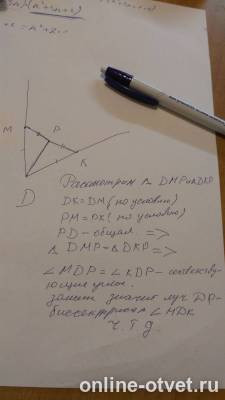 M
P
K
D
Рассмотрим △ DMP и △DKP
DK=DM (по условию)
PM=PK (по условию)
PD - общая =>
△ DMP=△DKP =>
∠MDP=∠KDP - соответству-
ющие углы.
значит луч DP-
биссектриса ∠MDK
ч.т.д.
online-otvet.ru